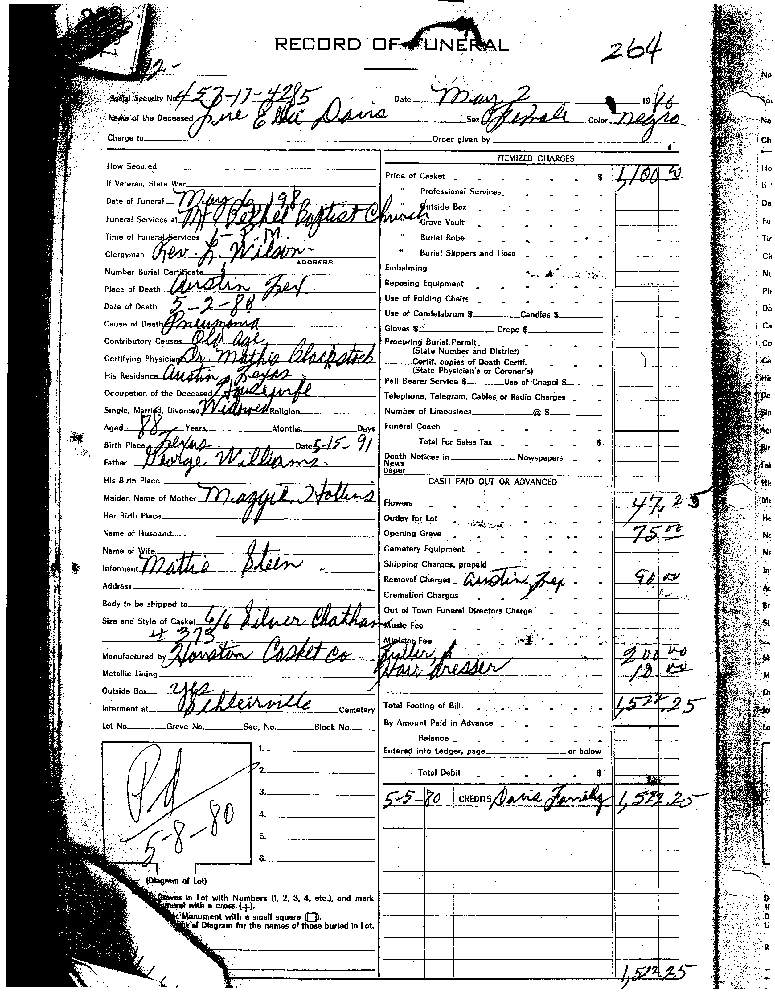 RECORD OF FUNERAL
264
Social Security No. 457-17-4285 Date May 2 19
Name of the Deceased Davis Sex Female Color Negro
Charge to Order given by
How Secured
If Veteran, State War
Date of Funeral May 6, 198
Funeral Services at Mt. Bethel Baptist Church
Time of Funeral Services P.M.
Clergyman Rev. L. Wilson
ADDRESS
Number Burial Certificate
Place of Death Austin Tex
Date of Death 5-2-80
Cause of Death Pneumonia
Contributory Causes Old Age
Certifying Physician Dr. Mathis Blackstock
His Residence Austin, Texas
Occupation of the Deceased Housewife
Single, Married, Divorced Widowed Religion
Aged 88 Years, Months, Days
Birth Place Texas Date 5-15-91
Father George Williams
His Birth Place
Maiden Name of Mother Maggie Hollins
Her Birth Place
Name of Husband
Name of Wife
Informant Mattie Steen
Address
Body to be shipped to
Size and Style of Casket 6/6 Silver Chatham
4373
Manufactured by Houston Casket Co
Metallic Lining
Outside Box yes
Interment at Cemetery
Lot No. Grave No. Sec. No. Block No.
Pd
5-8-80
1.
2.
3.
4.
5.
6.
(Diagram of Lot)
Graves in Lot with Numbers (1, 2, 3, 4, etc.), and mark
Funeral with a cross (+).
Monument with a small square
of Diagram for the names of those buried in Lot.
ITEMIZED CHARGES
Price of Casket $ 1,100.00
" Professional Services
" Outside Box
" Grave Vault
" Burial Robe
" Burial Slippers and Hose
Embalming
Reposing Equipment
Use of Folding Chairs
Use of Candelabrum $ Candles $
Gloves $ Crepe $
Procuring Burial Permit
(State Number and District)
Certif. copies of Death Certif.
(State Physician's or Coroner's)
Pall Bearer Service $ Use of Chapel $
Telephone, Telegram, Cables or Radio Charges
Number of Limousines @ $
Funeral Coach
Total For Sales Tax $
Death Notices in Newspapers
News
Paper
CASH PAID OUT OR ADVANCED
Flowers 47.25
Outlay for Lot
Opening Grave 75.00
Cemetery Equipment
Shipping Charges, prepaid
Removal Charges Austin, Tex 90.00
Cremation Charges
Out of Town Funeral Directors Charge
Music Fee
Minister Fee
200.00
Hair dresser 10.00
Total Footing of Bill 1,522.25
By Amount Paid in Advance
Balance
Entered into Ledger, page or below
Total Debit $
5-5-80 CREDITS Davis Family 1,522.25
1,522.25